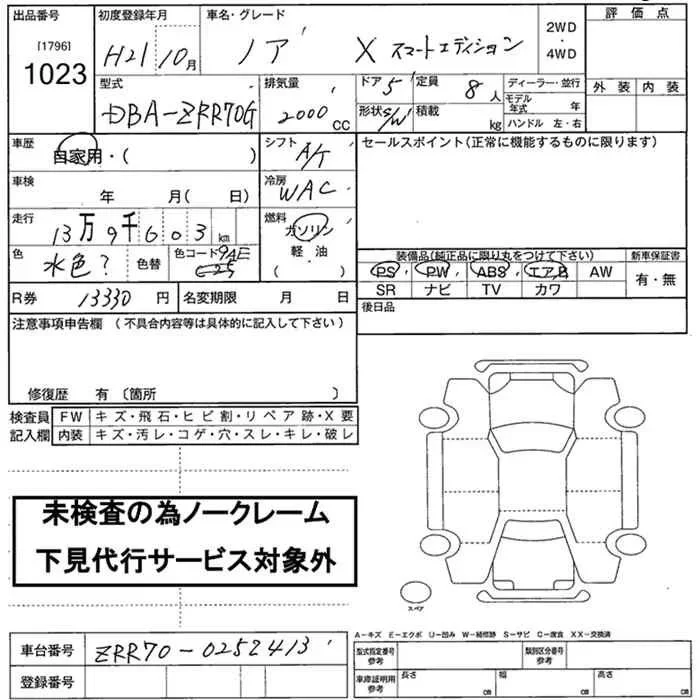 出品番号 初度登録年月 車名・グレード 評価点
[1796]
1023
H21 10月 ノア X スマートエディション 2WD・4WD
型式 排気量 ドア 5 定員 8人 ディーラー・並行 外装 内装
DBA-ZRR70G 2000CC 形状 S/W 積載 kg モデル年式 年
ハンドル 左・右
車歴 自家用・( ) シフト A/T セールスポイント(正常に機能するものに限ります)
車検 年 月( 日) 冷房 WAC
走行 13万9千603km 燃料 ガソリン
軽油
( )
色 水色? 色替 色コード 9AE
装備品(純正品に限り丸をつけて下さい) 新車保証書
PS PW ABS エアB AW 有・無
SR ナビ TV カワ
R券 13330円 名変期限 月 日 後日品
注意事項申告欄(不具合内容等は具体的に記入して下さい)
修復歴 有〔箇所 〕
検査員 FW キズ・飛石・ヒビ割・リペア跡・X要
記入欄 内装 キズ・汚レ・コゲ・穴・スレ・キレ・破レ
未検査の為ノークレーム
下見代行サービス対象外
スペア
A－キズ E－エクボ U－凹み W－補修跡 S－サビ C－腐食 XX－交換済
車台番号 ZRR70-0252413
登録番号
型式指定番号 参考 類別区分番号 参考
車庫証明用 参考 長さ cm 幅 cm 高さ cm